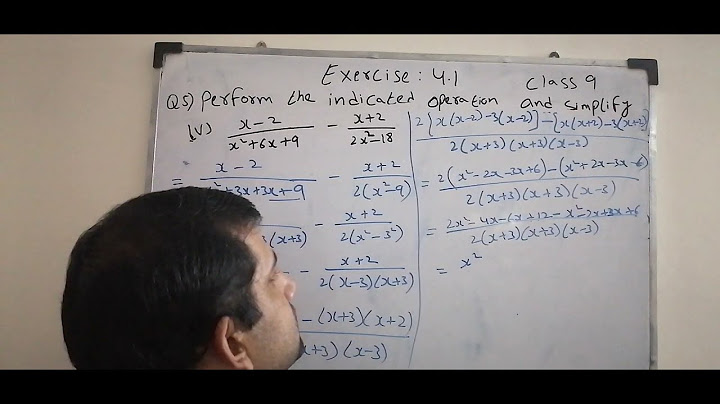 Exercise: 4.1 Class 9
Q5) Perform the indicated operation and simplify
(V) x-2 / x²+6x+9 - x+2 / 2x²-18
= x-2 / x²+3x+3x+9 - x+2 / 2(x²-9)
(x+3) - x+2 / 2(x²-3²)
- x+2 / 2(x-3)(x+3)
-(x+3)(x+2) / x+3)(x-3)
2[x(x-2)-3(x-2)]-[x(x+2)-3(x+2)] / 2(x+3)(x+3)(x-3)
= 2(x²-2x-3x+6)-(x²+2x-3x-6) / 2(x+3)(x+3)(x-3)
= 2x²-4x-6x+12-x²-2x+3x+6 / 2(x+3)(x+3)(x-3)
= x²